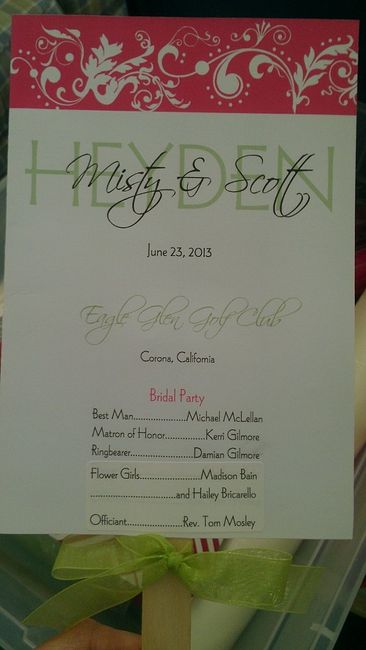 HEYDEN
Misty & Scott
June 23, 2013
Eagle Glen Golf Club
Corona, California
Bridal Party
Best Man..................Michael McLellan
Matron of Honor..............Kerri Gilmore
Ringbearer.....................Damian Gilmore
Flower Girls.....................Madison Bain
.............................and Hailey Bricarello
Officiant............................Rev. Tom Mosley